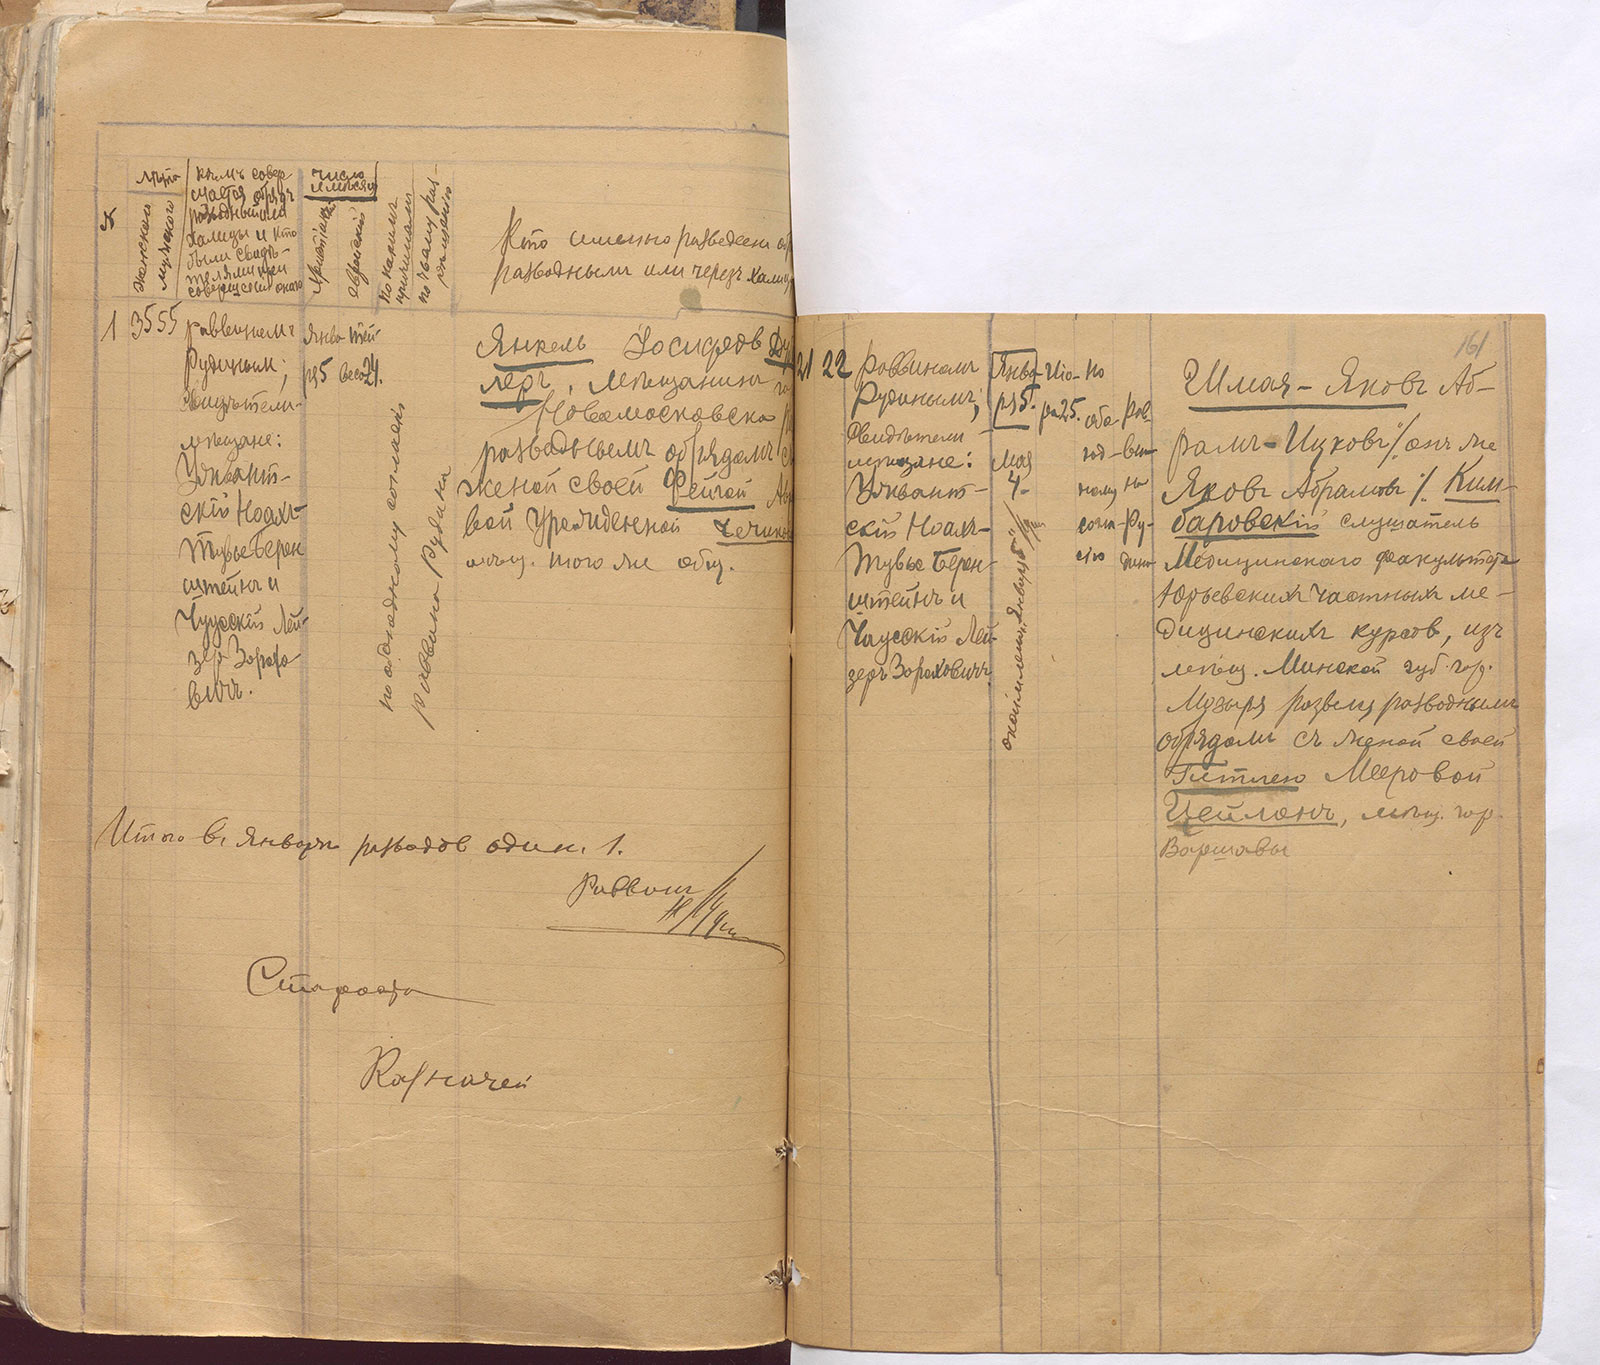 №
лѣта
женскаго
мужского
кѣмъ совер
шается обрядъ
разводный или
халицы и кто
были свидѣ-
телями при
совершеніи онаго
число
и мѣсяцъ
христіанскій
еврейскій
по какимъ
причинамъ
по чьему раз-
рѣшенію
Кто именно разведенъ
разводнымъ или черезъ
1
35 55
раввиномъ
Рудинымъ;
Свидѣтели-
мѣщане:
скій Ноахъ-
Тувье Берен
штейнъ и
Чаусскій Лей-
зеръ Зорахо
вичъ.
Янва
ря 5
24.
по обоюдному согласію
раввина Рудина
Янкель Іосифовъ
леръ, мѣщанинъ
Новомосковска
разводнымъ обрядомъ
женой своей Фейгой
вой урожденной
мѣщ. того же общ.
Итого въ Январѣ разводовъ одинъ. 1.
Раввинъ
Староста
Казначей
161
21 22
Раввиномъ
Рудинымъ;
Свидѣтели
мѣщане:
скій Ноахъ-
Тувье Берен-
штейнъ и
Чаусскій Лей-
зеръ Зораховичъ
Янва-
ря 5.
мая
4-
ра 25.
по
обо
юд-
ному
согла-
сію
Рав-
ви-
на
Ру-
дина
Шмая-Яковъ Аб-
рамъ-Ицковъ /онъ же
Яковъ Абрамовъ/ Ким-
баровскій слушатель
Медицинскаго факультета
Юрьевскихъ частныхъ ме-
дицинскихъ курсовъ, изъ
мѣщ. Минской губ. гор.
Мозыря развелся разводнымъ
обрядомъ съ женой своей
Гитлею Мееровой
Цейлонъ, мѣщ. гор.
Варшавы